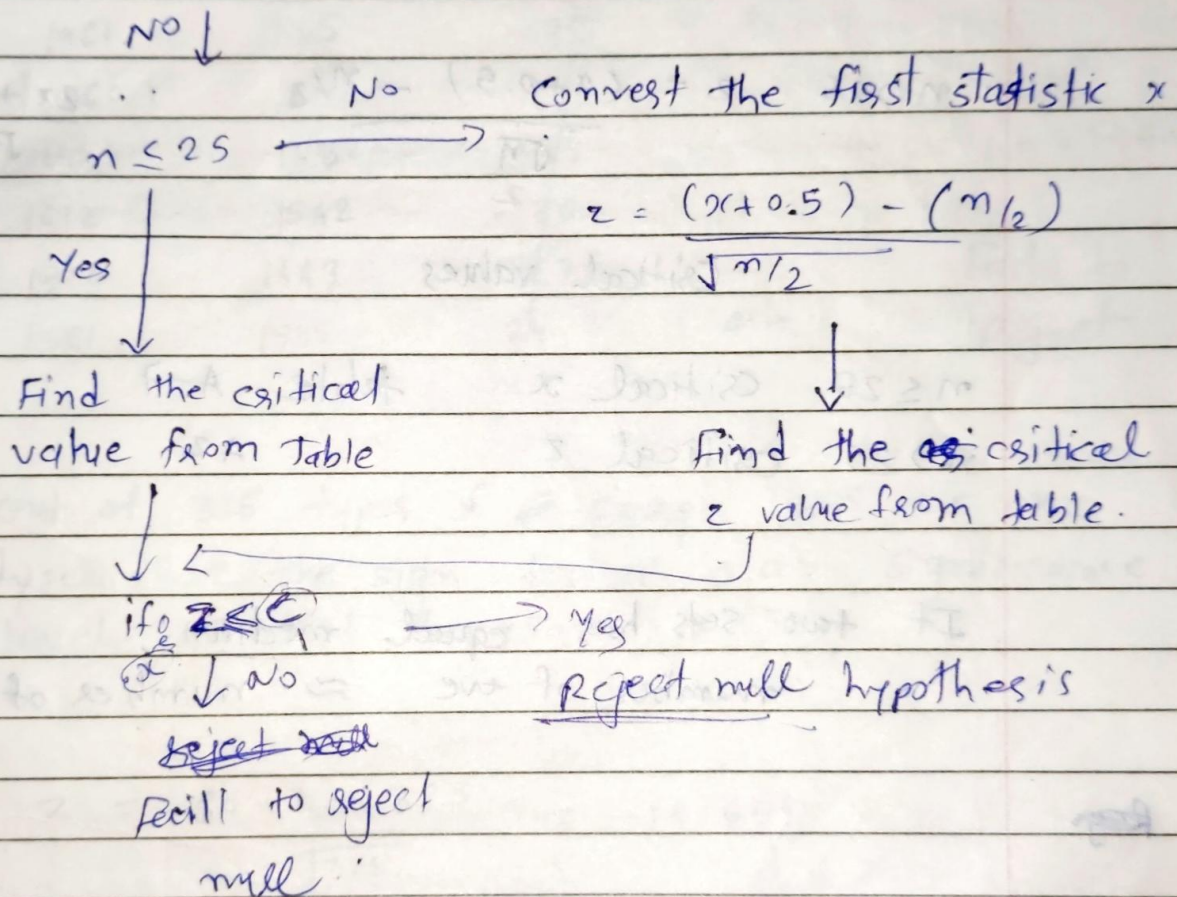 NO ↓
No convert the first statistic x
n ≤ 25 →
z = (x+0.5) - (n/2)
√n/2
Yes
Find the critical
value from Table
find the critical
z value from table.
if z ≤ C → Yes
x ↓ No
Reject null hypothesis
reject null
Faill to reject
null.